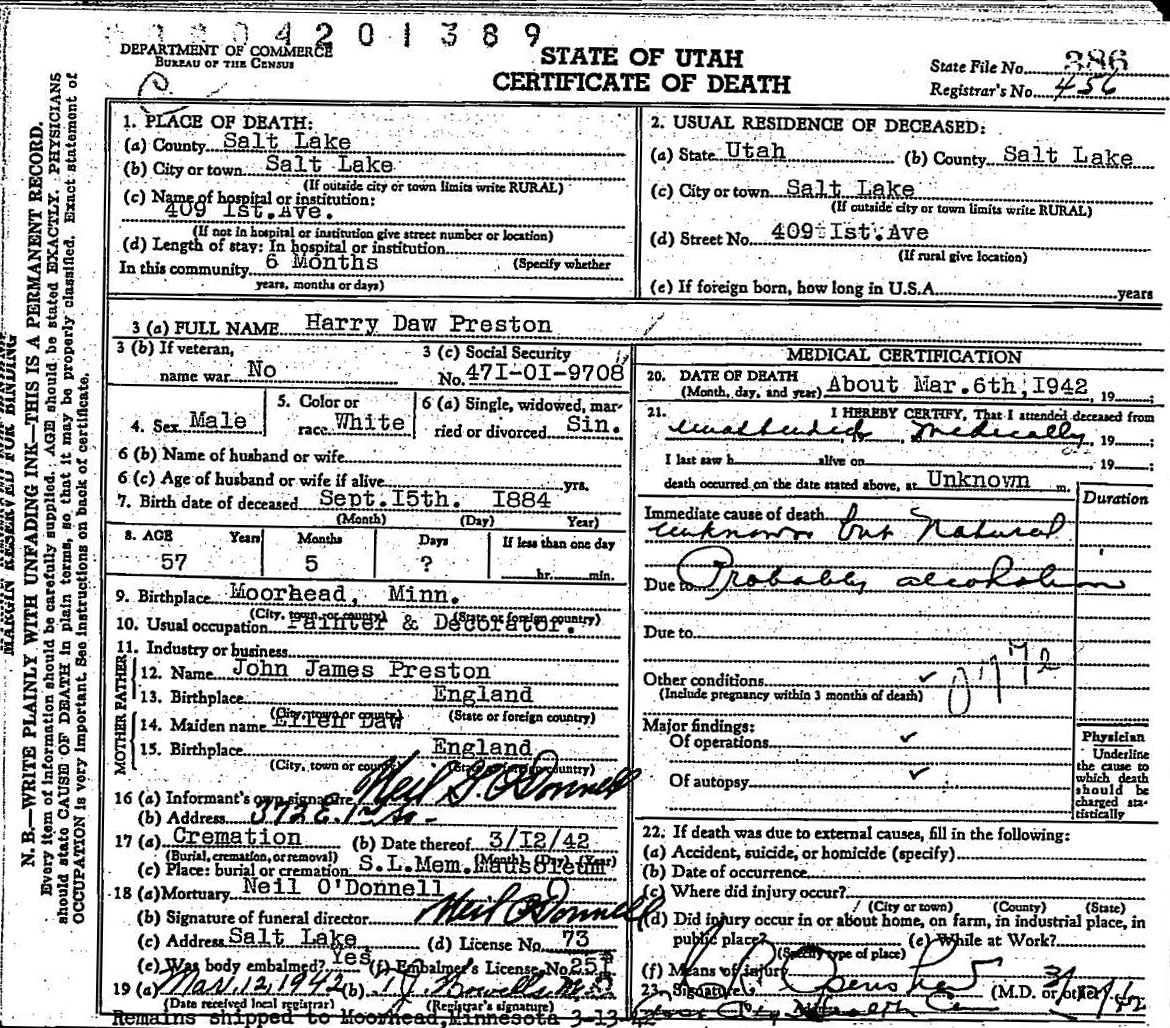 04201389
DEPARTMENT OF COMMERCE
BUREAU OF THE CENSUS
STATE OF UTAH
CERTIFICATE OF DEATH
State File No. 386
Registrar's No. 456
MARGIN RESERVED FOR BINDING
N. B.—WRITE PLAINLY WITH UNFADING INK—THIS IS A PERMANENT RECORD.
Every item of information should be carefully supplied. AGE should be stated EXACTLY. PHYSICIANS
should state CAUSE OF DEATH in plain terms, so that it may be properly classified. Exact statement of
OCCUPATION is very important. See instructions on back of certificate.
1. PLACE OF DEATH:
(a) County Salt Lake
(b) City or town Salt Lake
(If outside city or town limits write RURAL)
(c) Name of hospital or institution:
409 Ist.Ave.
(If not in hospital or institution give street number or location)
(d) Length of stay: In hospital or institution
In this community 6 Months (Specify whether
years, months or days)
2. USUAL RESIDENCE OF DECEASED:
(a) State Utah (b) County Salt Lake
(c) City or town Salt Lake
(If outside city or town limits write RURAL)
(d) Street No. 409 Ist.Ave
(If rural give location)
(e) If foreign born, how long in U.S.A. years
3 (a) FULL NAME Harry Daw Preston
3 (b) If veteran, name war No
3 (c) Social Security No. 47I-OI-9708
4. Sex Male
5. Color or race White
6 (a) Single, widowed, married or divorced Sin.
6 (b) Name of husband or wife
6 (c) Age of husband or wife if alive yrs.
7. Birth date of deceased Sept.I5th. I884
(Month) (Day) Year)
8. AGE Years Months Days If less than one day
57 5 ? hr. min.
9. Birthplace Moorhead, Minn.
(City, town or county) (State or foreign country)
10. Usual occupation Painter & Decorator.
11. Industry or business
FATHER
12. Name John James Preston
13. Birthplace England
(City, town or county) (State or foreign country)
MOTHER
14. Maiden name Ellen Daw
15. Birthplace England
(City, town or county) (State or foreign country)
16 (a) Informant's own signature Neil G O'Donnell
(b) Address 372 E. 1st So.
17 (a) Cremation (b) Date thereof 3/I2/42
(Burial, cremation, or removal) (Month) (Day) (Year)
(c) Place: burial or cremation S.L.Mem.Mausoleum
18 (a) Mortuary Neil O'Donnell
(b) Signature of funeral director Neil O'Donnell
(c) Address Salt Lake (d) License No. 73
(e) Was body embalmed? Yes (f) Embalmer's License No. 257
19 (a) Mar. 12, 1942 (b)
(Date received local registrar) (Registrar's signature)
Remains shipped to Moorhead, Minnesota 3-13-42
MEDICAL CERTIFICATION
20. DATE OF DEATH
(Month, day, and year) About Mar.6th,I942, 19 ;
21. I HEREBY CERTIFY, That I attended deceased from
unattended medically, 19 ;
I last saw h alive on , 19 ;
death occurred on the date stated above, at Unknown m.
Duration
Immediate cause of death
unknown but natural
Due to Probably alcoholism
Due to
Other conditions
(Include pregnancy within 3 months of death)
Major findings:
Of operations
Of autopsy
Physician
Underline
the cause to
which death
should be
charged sta-
tistically
22. If death was due to external causes, fill in the following:
(a) Accident, suicide, or homicide (specify)
(b) Date of occurrence
(c) Where did injury occur?
(City or town) (County) (State)
(d) Did injury occur in or about home, on farm, in industrial place, in
public place? (e) While at Work?
(Specify type of place)
(f) Means of injury
23. Signature (M.D. or other)